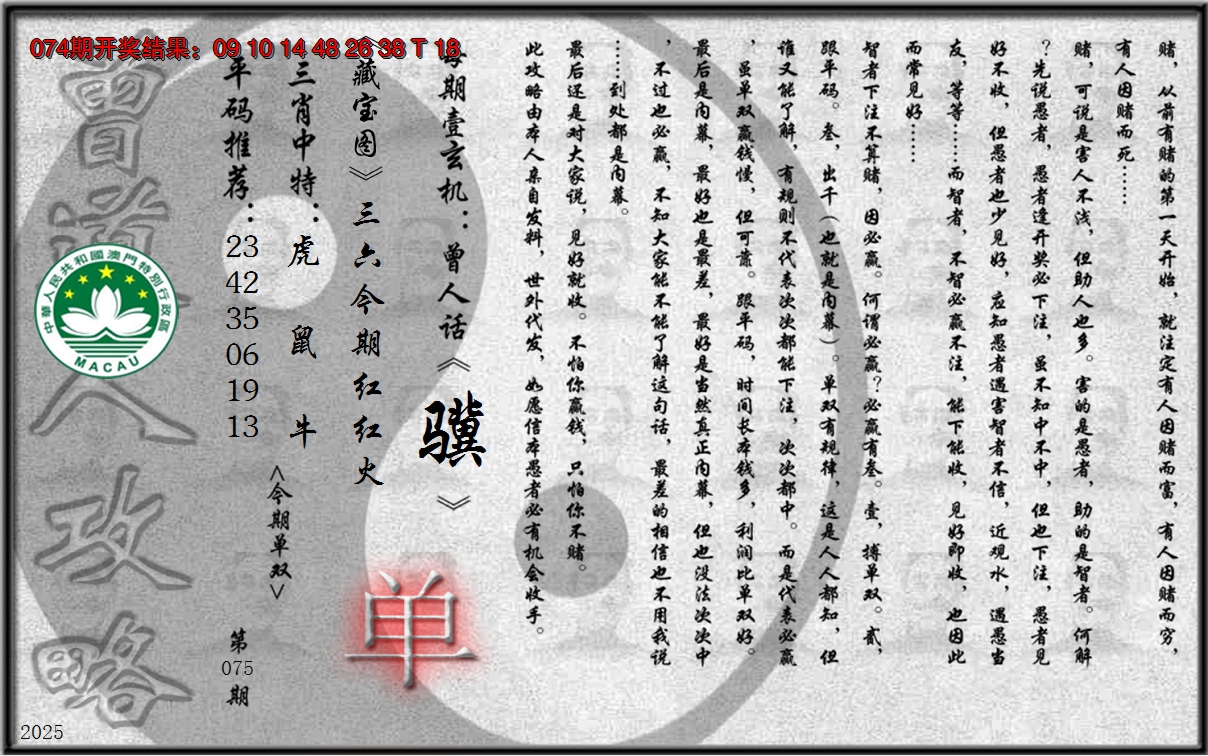 074期开奖结果：09 10 14 48 26 38 T 18
赌，从前有赌的第一天开始，就注定有人因赌而富，有人因赌而穷，
有人因赌而死……
赌，可说是害人不浅，但助人也多。害的是愚者，助的是智者。何解
？先说愚者，愚者逢开奖必下注，虽不知中不中，但也下注，愚者见
好不收，但愚者也少见好，应知愚者遇害智者不信，近观水，遇愚当
友，等等……而智者，不智必赢不注，能下能收，见好即收，也因此
而常见好……
智者下注不算赌，因必赢。何谓必赢？必赢有叁。壹，搏单双。贰，
跟平码。叁，出千（也就是内幕）。单双有规律，这是人人都知，但
谁又能了解，有规则不代表次次都能下注，次次都中。而是代表必赢
，虽单双赢钱慢，但可靠。跟平码，时间长本钱多，利润比单双好。
最后是内幕，最好也是最差，最好是当然真正内幕，但也没法次次中
，不过也必赢，不知大家能不能了解这句话，最差的相信也不用我说
……到处都是内幕。
最后还是对大家说，见好就收。不怕你赢钱，只怕你不赌。
此攻略由本人亲自发料，世外代发，如愿信本愚者必有机会收手。
每期壹玄机：曾人话《骥》
《藏宝图》三六今期红红火
三肖中特：虎 鼠 牛
<今期单双>
单
平码推荐：
23
42
35
06
19
13
第
075
期
曾道人攻略
中華人民共和國澳門特別行政區
MACAU
2025